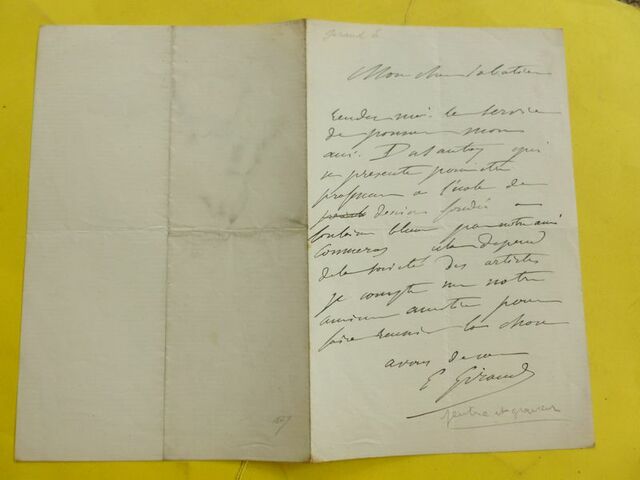 Giraud E
Mon cher Sabatier
Rendez moi le service
de pousser mon
ami qui
se présente pour être
professeur à l'école de
dessin fondée à
fontaine bleau par notre ami
cela dépend
de la société des artistes
je compte sur notre
ancienne amitié pour
faire réussir la chose
a vous de
E Giraud
peintre et graveur